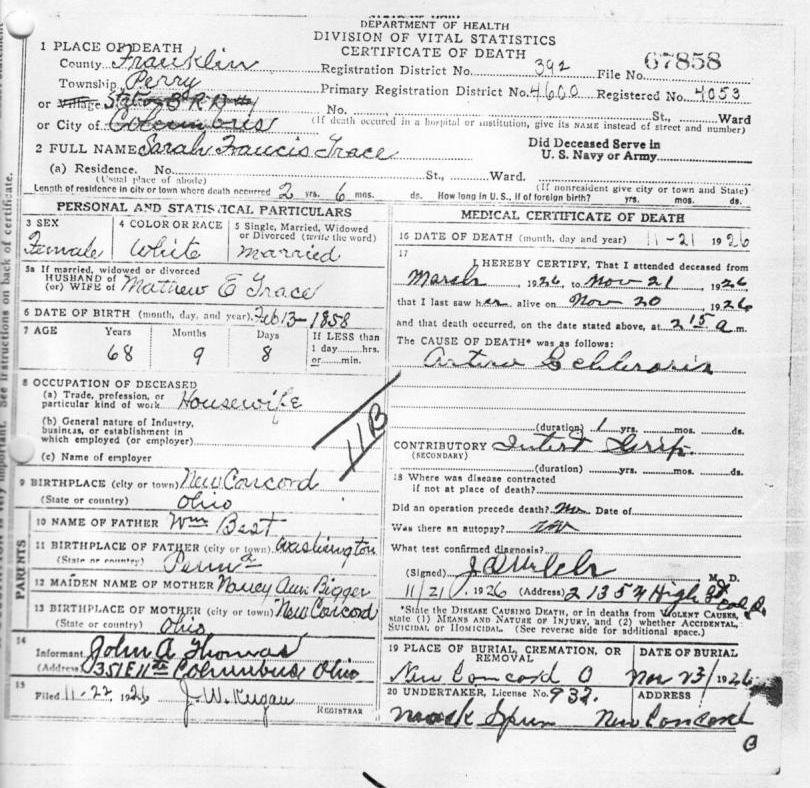 DEPARTMENT OF HEALTH
DIVISION OF VITAL STATISTICS
CERTIFICATE OF DEATH
1 PLACE OF DEATH
County Franklin Registration District No. 392 File No. 67858
Township Perry Primary Registration District No. 4600 Registered No. 4053
or Village No. St., Ward
or City of Columbus (If death occured in a hospital or institution, give its NAME instead of street and number)
2 FULL NAME Sarah Francis Grace Did Deceased Serve in U. S. Navy or Army
(a) Residence. No. St., Ward.
(Usual place of abode) (If nonresident give city or town and State)
Length of residence in city or town where death occurred 2 yrs. 6 mos. ds. How long in U. S., if of foreign birth? yrs. mos. ds.
PERSONAL AND STATISTICAL PARTICULARS
3 SEX 4 COLOR OR RACE 5 Single, Married, Widowed or Divorced (write the word)
Female White Married
5a If married, widowed or divorced
HUSBAND of
(or) WIFE of Mathew E Grace
6 DATE OF BIRTH (month, day, and year) Feb 13-1858
7 AGE Years Months Days If LESS than
68 9 8 1 day......hrs.
or......min.
8 OCCUPATION OF DECEASED
(a) Trade, profession, or
particular kind of work Housewife
(b) General nature of Industry,
business, or establishment in
which employed (or employer)
(c) Name of employer
11B
9 BIRTHPLACE (city or town) New Concord
(State or country) Ohio
PARENTS
10 NAME OF FATHER Wm Best
11 BIRTHPLACE OF FATHER (city or town) Washington
(State or country) Penna
12 MAIDEN NAME OF MOTHER Nancy Ann Bigger
13 BIRTHPLACE OF MOTHER (city or town) New Concord
(State or country) Ohio
14
Informant John A Thomas
(Address) 351 E 11th Columbus Ohio
15
Filed 11-22 1926
REGISTRAR
MEDICAL CERTIFICATE OF DEATH
16 DATE OF DEATH (month, day and year) 11-21 1926
17
I HEREBY CERTIFY, That I attended deceased from
March, 1926, to Nov 21, 1926
that I last saw her alive on Nov 20, 1926
and that death occurred, on the date stated above, at 2 15 a m.
The CAUSE OF DEATH* was as follows:
(duration) 1 yrs. mos. ds.
CONTRIBUTORY
(SECONDARY)
(duration) yrs. mos. ds.
18 Where was disease contracted
if not at place of death?
Did an operation precede death? no Date of
Was there an autopsy? no
What test confirmed diagnosis?
(Signed) M. D.
11/21, 1926 (Address) High St Col. O.
*State the DISEASE CAUSING DEATH, or in deaths from VIOLENT CAUSES,
state (1) MEANS AND NATURE OF INJURY, and (2) whether ACCIDENTAL,
SUICIDAL or HOMICIDAL. (See reverse side for additional space.)
19 PLACE OF BURIAL, CREMATION, OR REMOVAL DATE OF BURIAL
New Concord O Nov 23/1926
20 UNDERTAKER, License No. 932. ADDRESS
New Concord
See instructions on back of certificate.